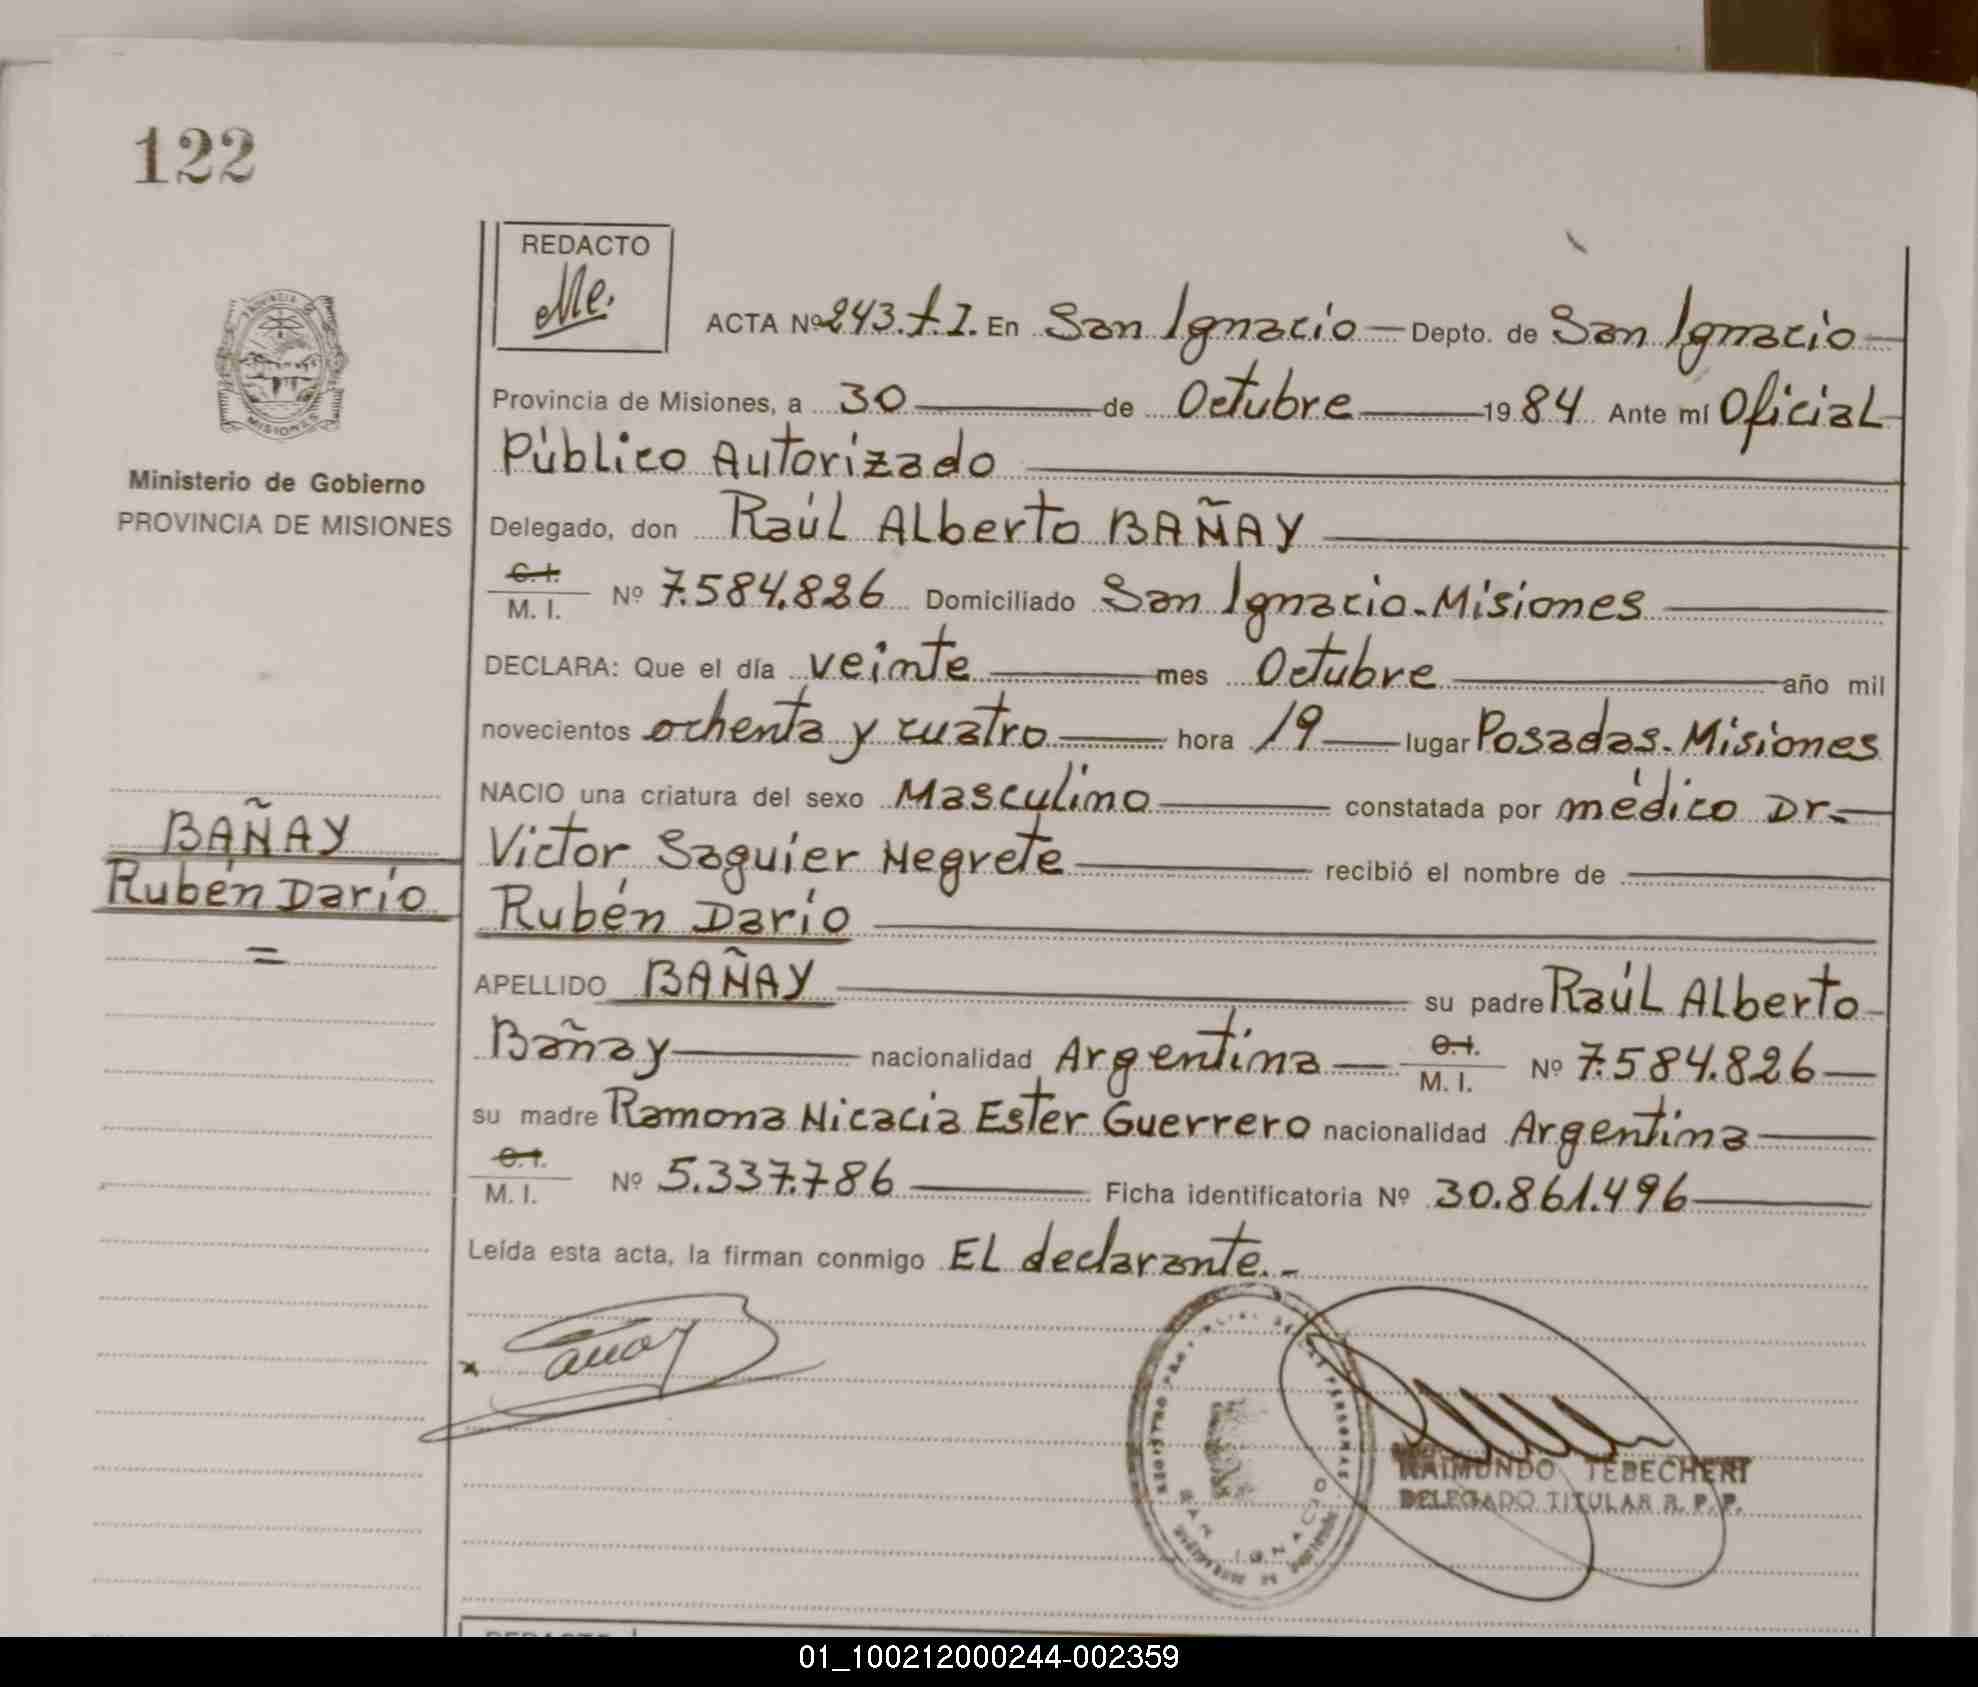 122
REDACTO
Me.
ACTA Nº 243.t.I. En San Ignacio Depto. de San Ignacio
Provincia de Misiones, a 30 de Octubre 1984 Ante mí Oficial
Público Autorizado
Ministerio de Gobierno
PROVINCIA DE MISIONES
Delegado, don Raúl Alberto BAÑAY
C.I.
M. I. Nº 7.584.826 Domiciliado San Ignacio-Misiones
DECLARA: Que el día veinte mes Octubre año mil
novecientos ochenta y cuatro hora 19 lugar Posadas-Misiones
NACIO una criatura del sexo Masculino constatada por médico Dr.
Victor Saguier Negrete recibió el nombre de
Rubén Darío
BAÑAY
Rubén Darío
=
APELLIDO BAÑAY su padre Raúl Alberto
Bañay nacionalidad Argentina C.I. M. I. Nº 7.584.826
su madre Ramona Nicacia Ester Guerrero nacionalidad Argentina
C.I.
M. I. Nº 5.337.786 Ficha identificatoria Nº 30.861.496
Leída esta acta, la firman conmigo El declarante.-
x
SAN IGNACIO
RAIMUNDO TEBECHERI
DELEGADO TITULAR R. P. P.
01_100212000244-002359